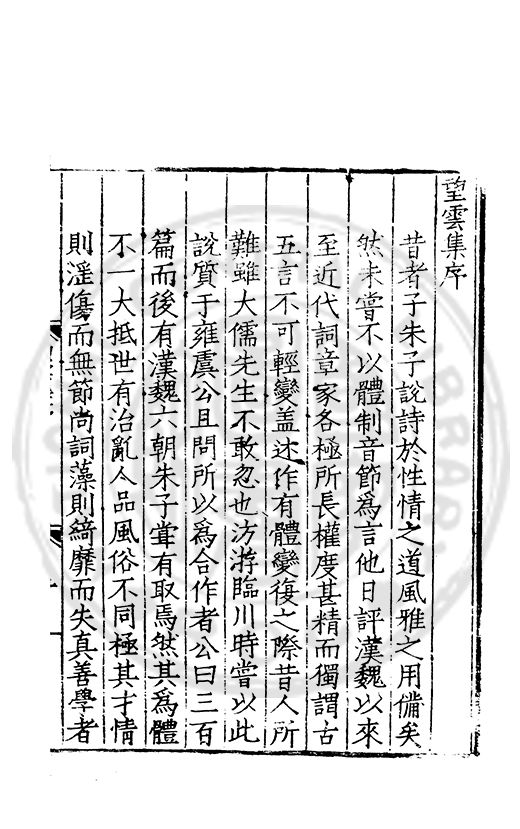 望雲集序
昔者子朱子說詩於性情之道風雅之用備矣
然未嘗不以體制音節爲言他日評漢魏以來
至近代詞章家各極所長權度甚精而獨謂古
五言不可輕變盖述作有體變復之際昔人所
難雖大儒先生不敢忽也汸游臨川時嘗以此
說質于雍虞公且問所以爲合作者公曰三百
篇而後有漢魏六朝朱子甞有取焉然其爲體
不一大抵世有治亂人品風俗不同極其才情
則滛傷而無節尚詞藻則綺靡而失真善學者